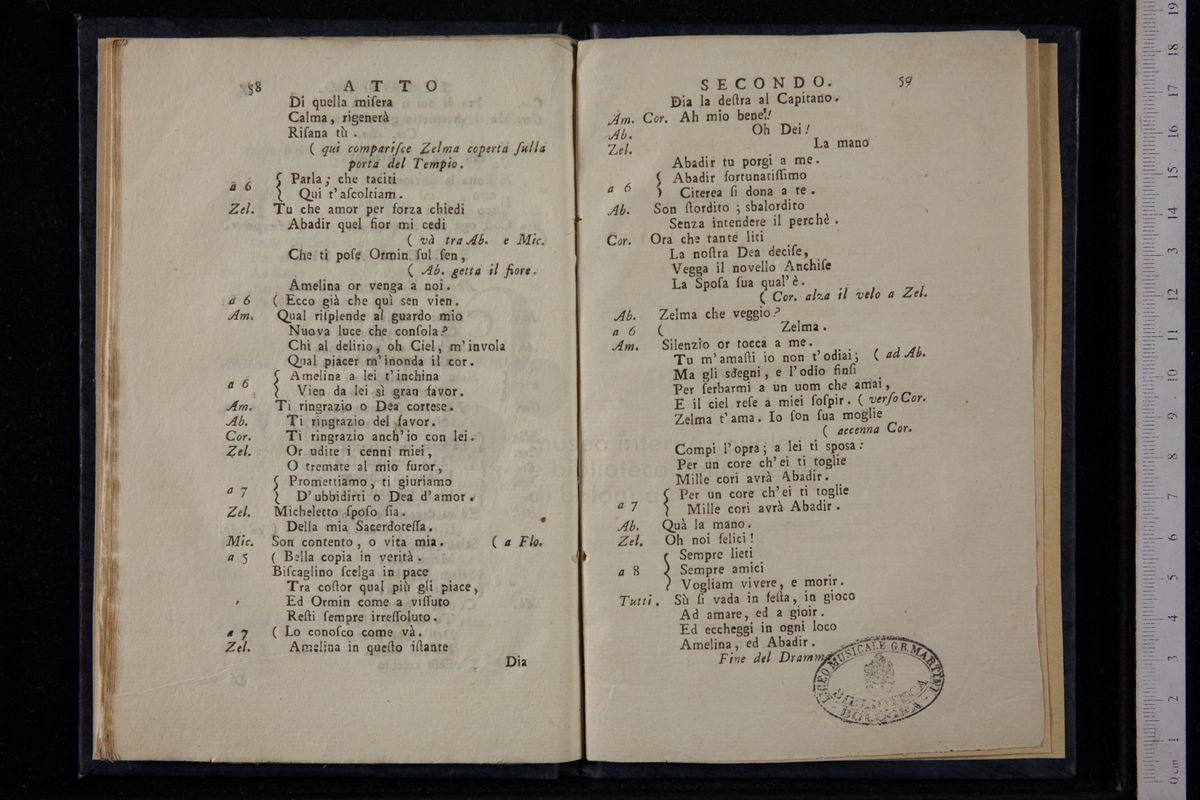 58 ATTO
Di quella miſera
Calma, rigenerà
Riſana tù.
( quì compariſce Zelma coperta ſulla
porta del Tempio.
a 6 { Parla; che taciti
Quì t'aſcoltiam.
Zel. Tu che amor per forza chiedi
Abadir quel fior mi cedi
( và tra Ab. e Mic.
Che ti poſe Ormin ſul ſen,
( Ab. getta il fiore.
Amelina or venga a noi.
a 6 ( Ecco già che quì sen vien.
Am. Qual riſplende al guardo mio
Nuova luce che conſola?
Chi al delirio, oh Ciel, m'invola
Qual piacer m'inonda il cor.
a 6 { Amelina a lei t'inchina
Vien da lei sì gran favor.
Am. Ti ringrazio o Dea cortese.
Ab. Ti ringrazio del favor.
Cor. Ti ringrazio anch'io con lei.
Zel. Or udite i cenni miei,
O tremate al mio furor,
a 7 { Promettiamo, ti giuriamo
D'ubbidirti o Dea d'amor.
Zel. Micheletto ſpoſo ſia.
( Della mia Sacerdoteſſa.
Mic. Son contento, o vita mia. ( a Flo.
a 5 ( Bella copia in verità.
Biſcaglino ſcelga in pace
Tra coſtor qual più gli piace,
Ed Ormin come a viſſuto
Reſti ſempre irreſſoluto.
a 7 ( Lo conoſco come và.
Zel. Amelina in queſto iſtante
Dia
SECONDO. 59
Dia la deſtra al Capitano.
Am. Cor. Ah mio bene!
Ab. Oh Dei!
Zel. La mano
Abadir tu porgi a me.
a 6 { Abadir fortunatiſſimo
Citerea ſi dona a te.
Ab. Son ſtordito; sbalordito
Senza intendere il perchè.
Cor. Ora che tante liti
La noſtra Dea deciſe,
Vegga il novello Anchiſe
La Spoſa ſua qual'è.
( Cor. alza il velo a Zel.
Ab. Zelma che veggio?
a 6 ( Zelma.
Am. Silenzio or tocca a me.
Tu m'amaſti io non t'odiai; ( ad Ab.
Ma gli sdegni, e l'odio finſi
Per ſerbarmi a un uom che amai,
E il ciel reſe a miei ſoſpir. ( verſo Cor.
Zelma t'ama. Io ſon ſua moglie
( accenna Cor.
Compi l'opra; a lei ti sposa:
Per un core ch'ei ti toglie
Mille cori avrà Abadir.
a 7 { Per un core ch'ei ti toglie
Mille cori avrà Abadir.
Ab. Quà la mano.
Zel. Oh noi felici!
a 8 { Sempre lieti
Sempre amici
Vogliam vivere, e morir.
Tutti. Sù ſi vada in feſta, in gioco
Ad amare, ed a gioir.
Ed eccheggi in ogni loco
Amelina, ed Abadir.
Fine del Dramm
LICEO MUSICALE G.B. MARTINI
BIBLIOTECA
BOLOGNA